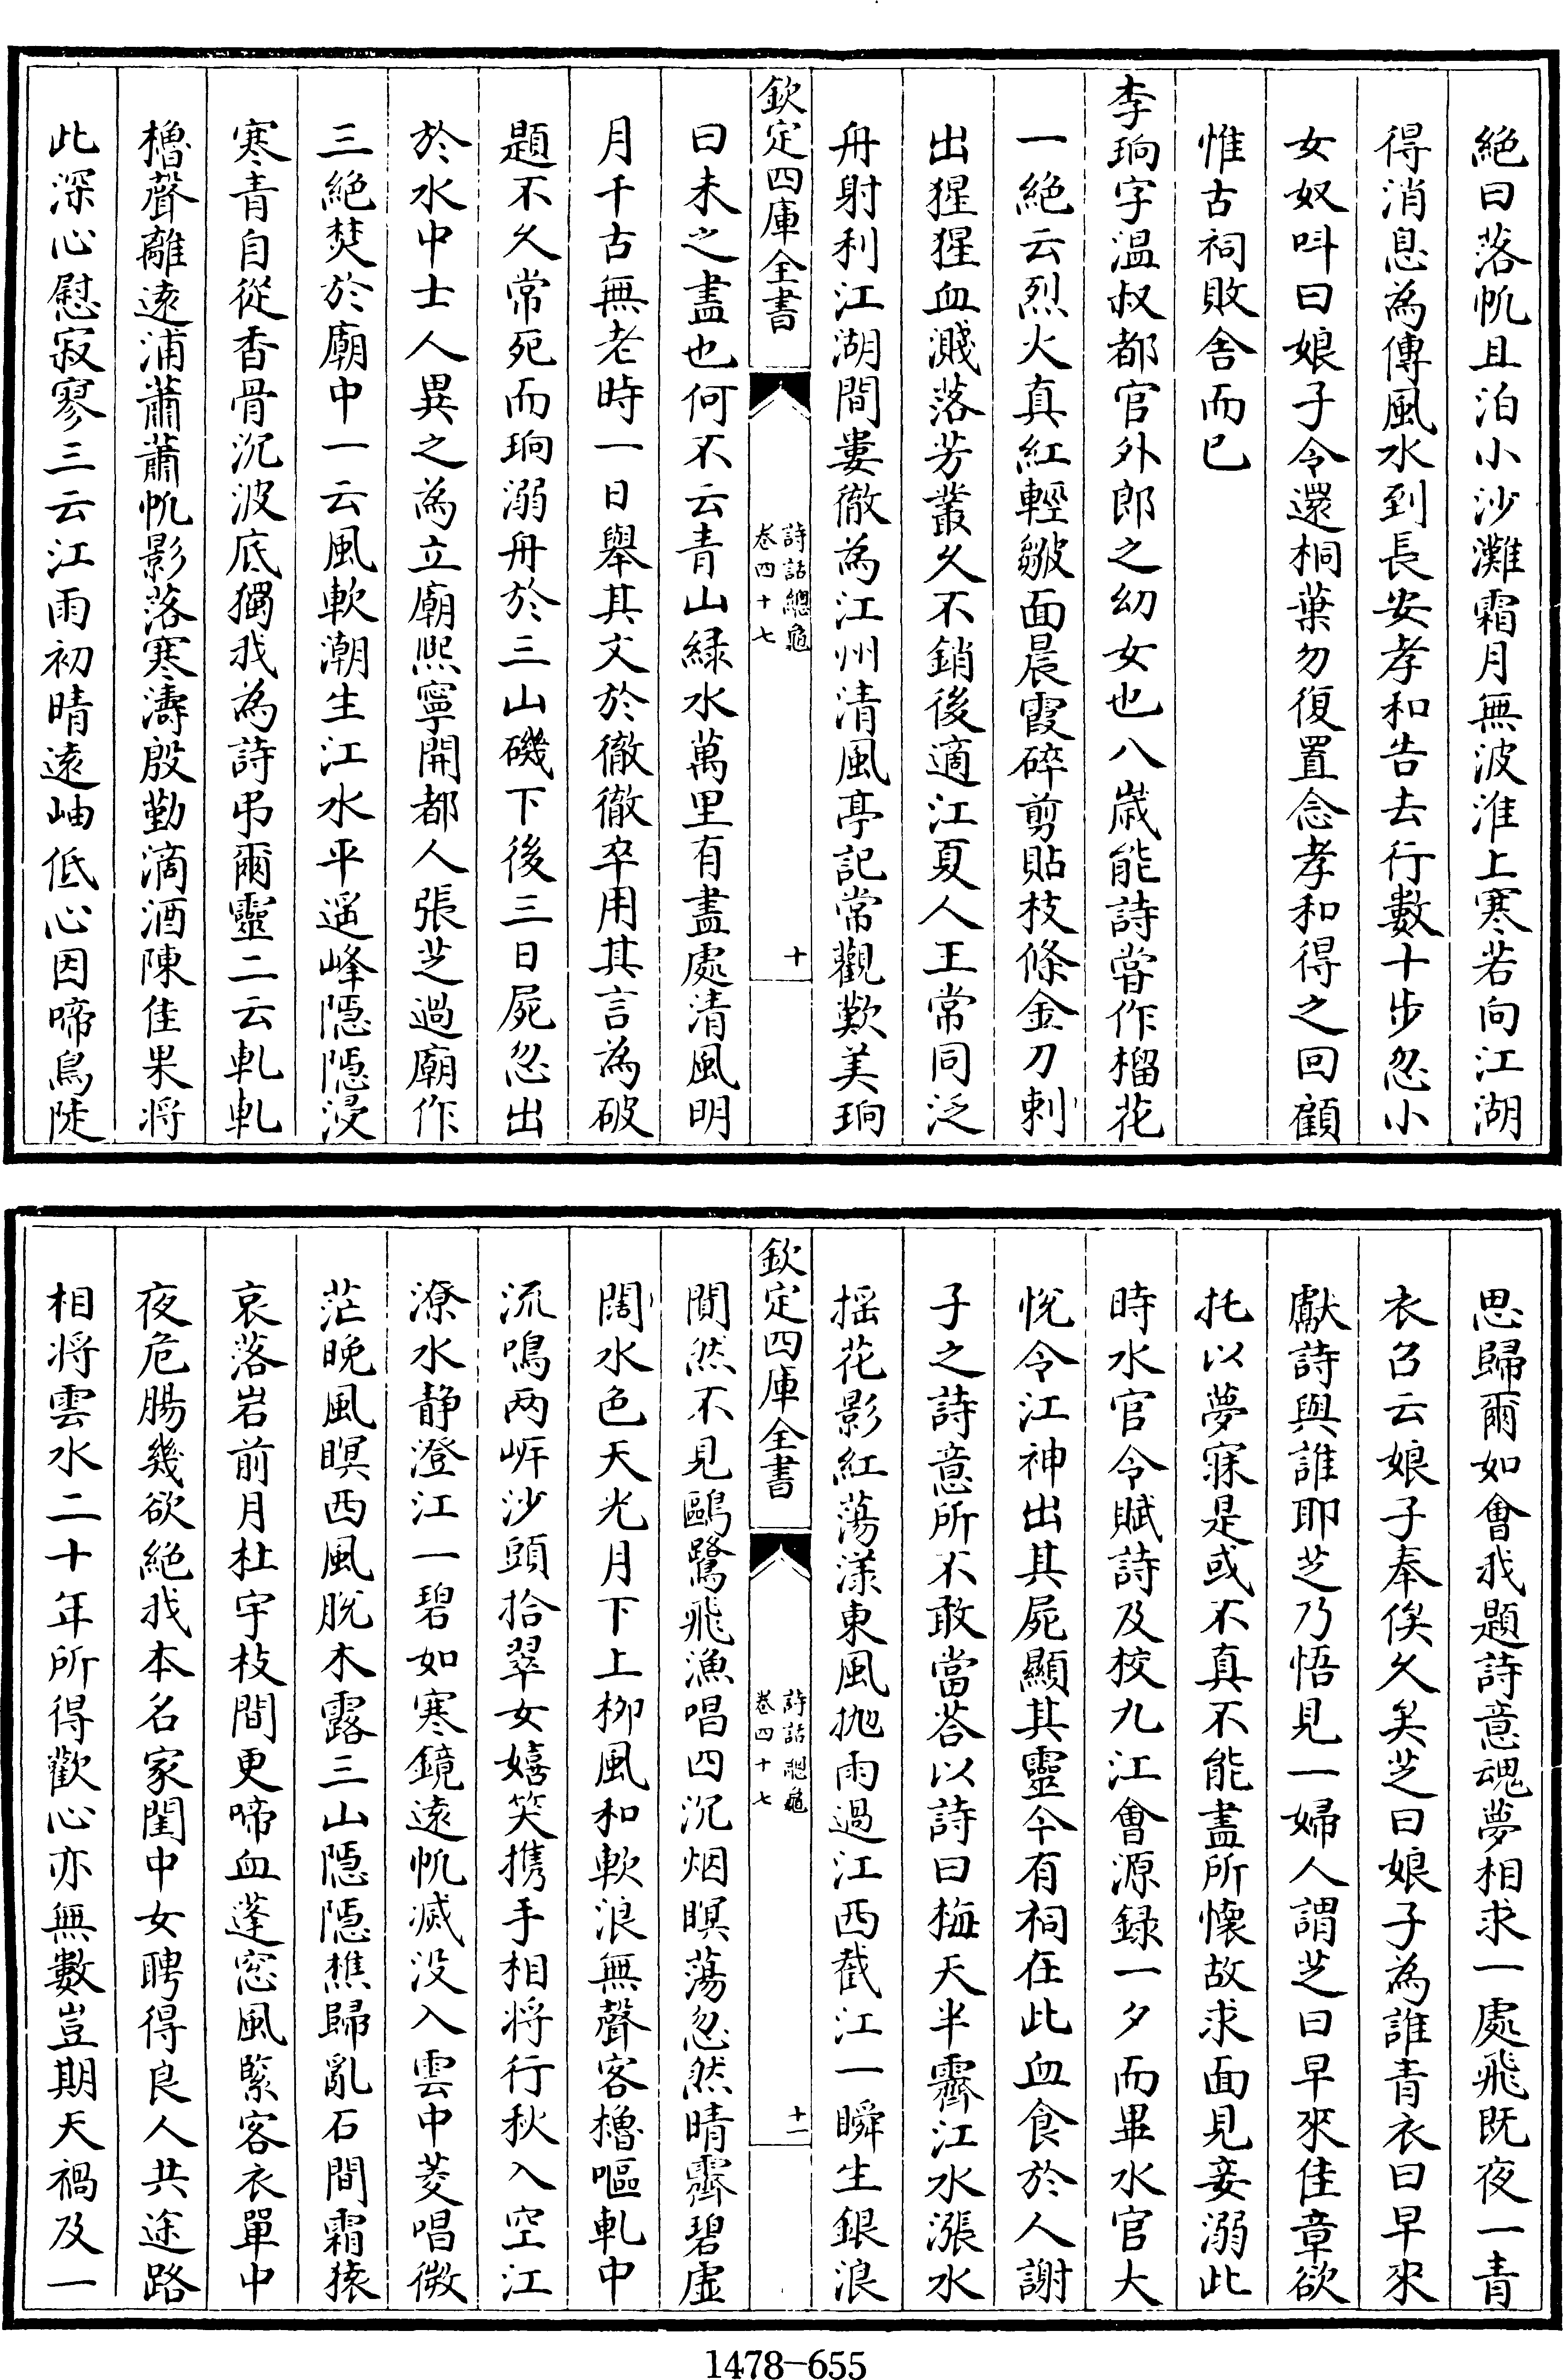 絶曰落帆且泊小沙灘霜月無波淮上寒若向江湖
得消息為傳風水到長安孝和告去行數十步忽小
女奴呌曰娘子令還桐葉勿復置念孝和得之回顧
惟古祠敗舎而已
李珣字温叔都官外郎之幼女也八歳能詩嘗作榴花
一絶云烈火真紅輕皺面晨霞碎剪貼枝條金刀刺
出猩猩血濺落芳叢久不銷後適江夏人王常同泛
舟射利江湖間婁徹為江州清風亭記常觀歎美珣
欽定四庫全書
詩話總龜
卷四十七
十
曰未之盡也何不云青山緑水萬里有盡處清風明
月千古無老時一日舉其文於徹徹卒用其言為破
題不久常死而珣溺舟於三山磯下後三日屍忽出
於水中士人異之為立廟熙寧開都人張芝過廟作
三絶焚於廟中一云風軟潮生江水平遥峰隱隱浸
寒青自從香骨沉波底獨我為詩弔爾靈二云軋軋
櫓聲離遠浦蕭蕭帆影落寒濤殷勤滴酒陳佳果将
此深心慰寂寥三云江雨初晴遠岫低心因啼鳥陡
思歸爾如會我題詩意魂夢相求一處飛既夜一青
衣召云娘子奉俟久矣芝曰娘子為誰青衣曰早來
獻詩與誰耶芝乃悟見一婦人謂芝曰早來佳章欲
托以夢寐是或不真不能盡所懐故求面見妾溺此
時水官令賦詩及校九江會源録一夕而畢水官大
悦令江神出其屍顯其靈今有祠在此血食於人謝
子之詩意所不敢當荅以詩曰梅天半霽江水漲水
揺花影紅蕩漾東風抛雨過江西截江一瞬生銀浪
欽定四庫全書
詩話總龜
卷四十七
十一
閴然不見鷗鷺飛漁唱四沉烟瞑蕩忽然晴霽碧虚
闊水色天光月下上栁風和軟浪無聲客櫓嘔軋中
流鳴兩㟁沙頭拾翠女嬉笑携手相将行秋入空江
潦水静澄江一碧如寒鏡遠帆滅没入雲中菱唱微
茫晩風瞑西風脱木露三山隱隱樵歸亂石間霜猿
哀落岩前月杜宇枝間更啼血蓬窓風緊客衣單中
夜危腸幾欲絶我本名家閨中女聘得良人共途路
相将雲水二十年所得歡心亦無數豈期天禍及一
1478-655